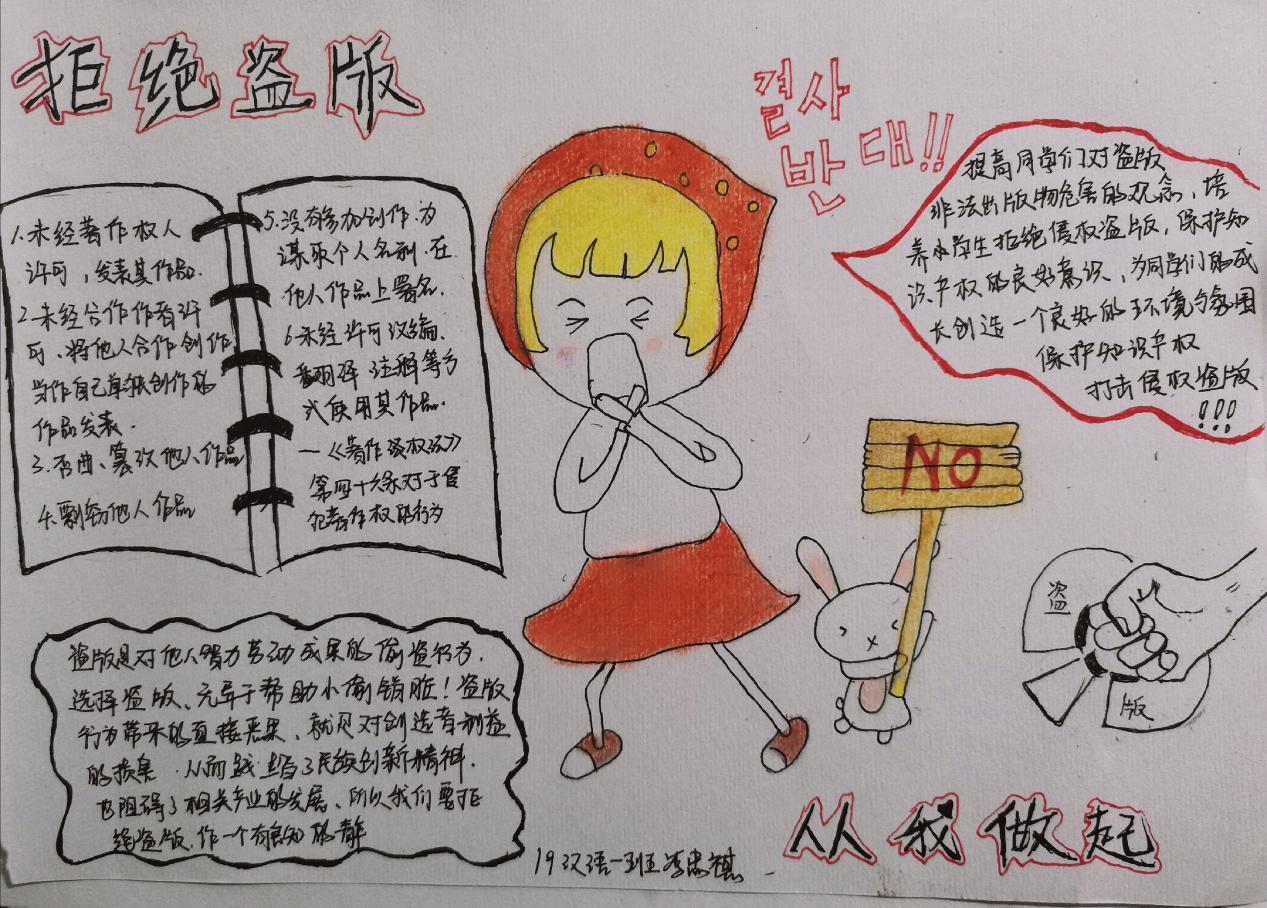 拒绝盗版
결사
반대!!
1.未经著作权人
许可，发表其作品.
2.未经合作作者许
可、将他人合作创作
当作自己单独创作的
作品发表.
3.歪曲、篡改他人作品
4.剽窃他人作品
5.没有参加创作.为
谋取个人名利.在
他人作品上署名.
6.未经许可改编、
翻译 注释等方
式使用其作品.
—《著作权法》
第四十六条对于侵
犯著作权的行为
提高同学们对盗版
非法出版物危害的观念，培
养小学生拒绝侵权盗版，保护知
识产权的良好意识，为同学们的成
长创造一个良好的环境与氛围
保护知识产权
打击侵权盗版
!!!
NO
盗
版
盗版是对他人努力劳动成果的偷盗行为.
选择盗版、无异于帮助小偷销脏！盗版
行为带来的直接恶果、就是对创造者利益
的损害.从而 了民族创新精神.
也阻碍了相关产业的发展、所以我们要拒
绝盗版.作一个有良知的
19汉语一班李忠祺
从我做起